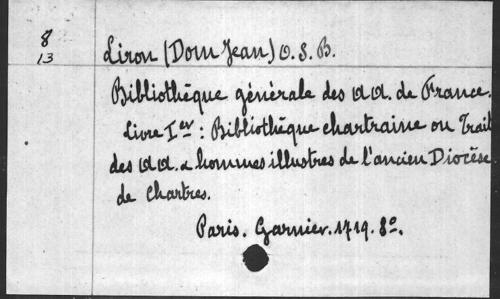 8
13
Liron (Dom Jean) O. S. B.
Bibliothèque générale des AA. de France.
Livre Ier : Bibliothèque chartraine ou Trait
des AA. & hommes illustres de l'ancien Diocèse
de Chartres.
Paris. Garnier. 1719. 8º.